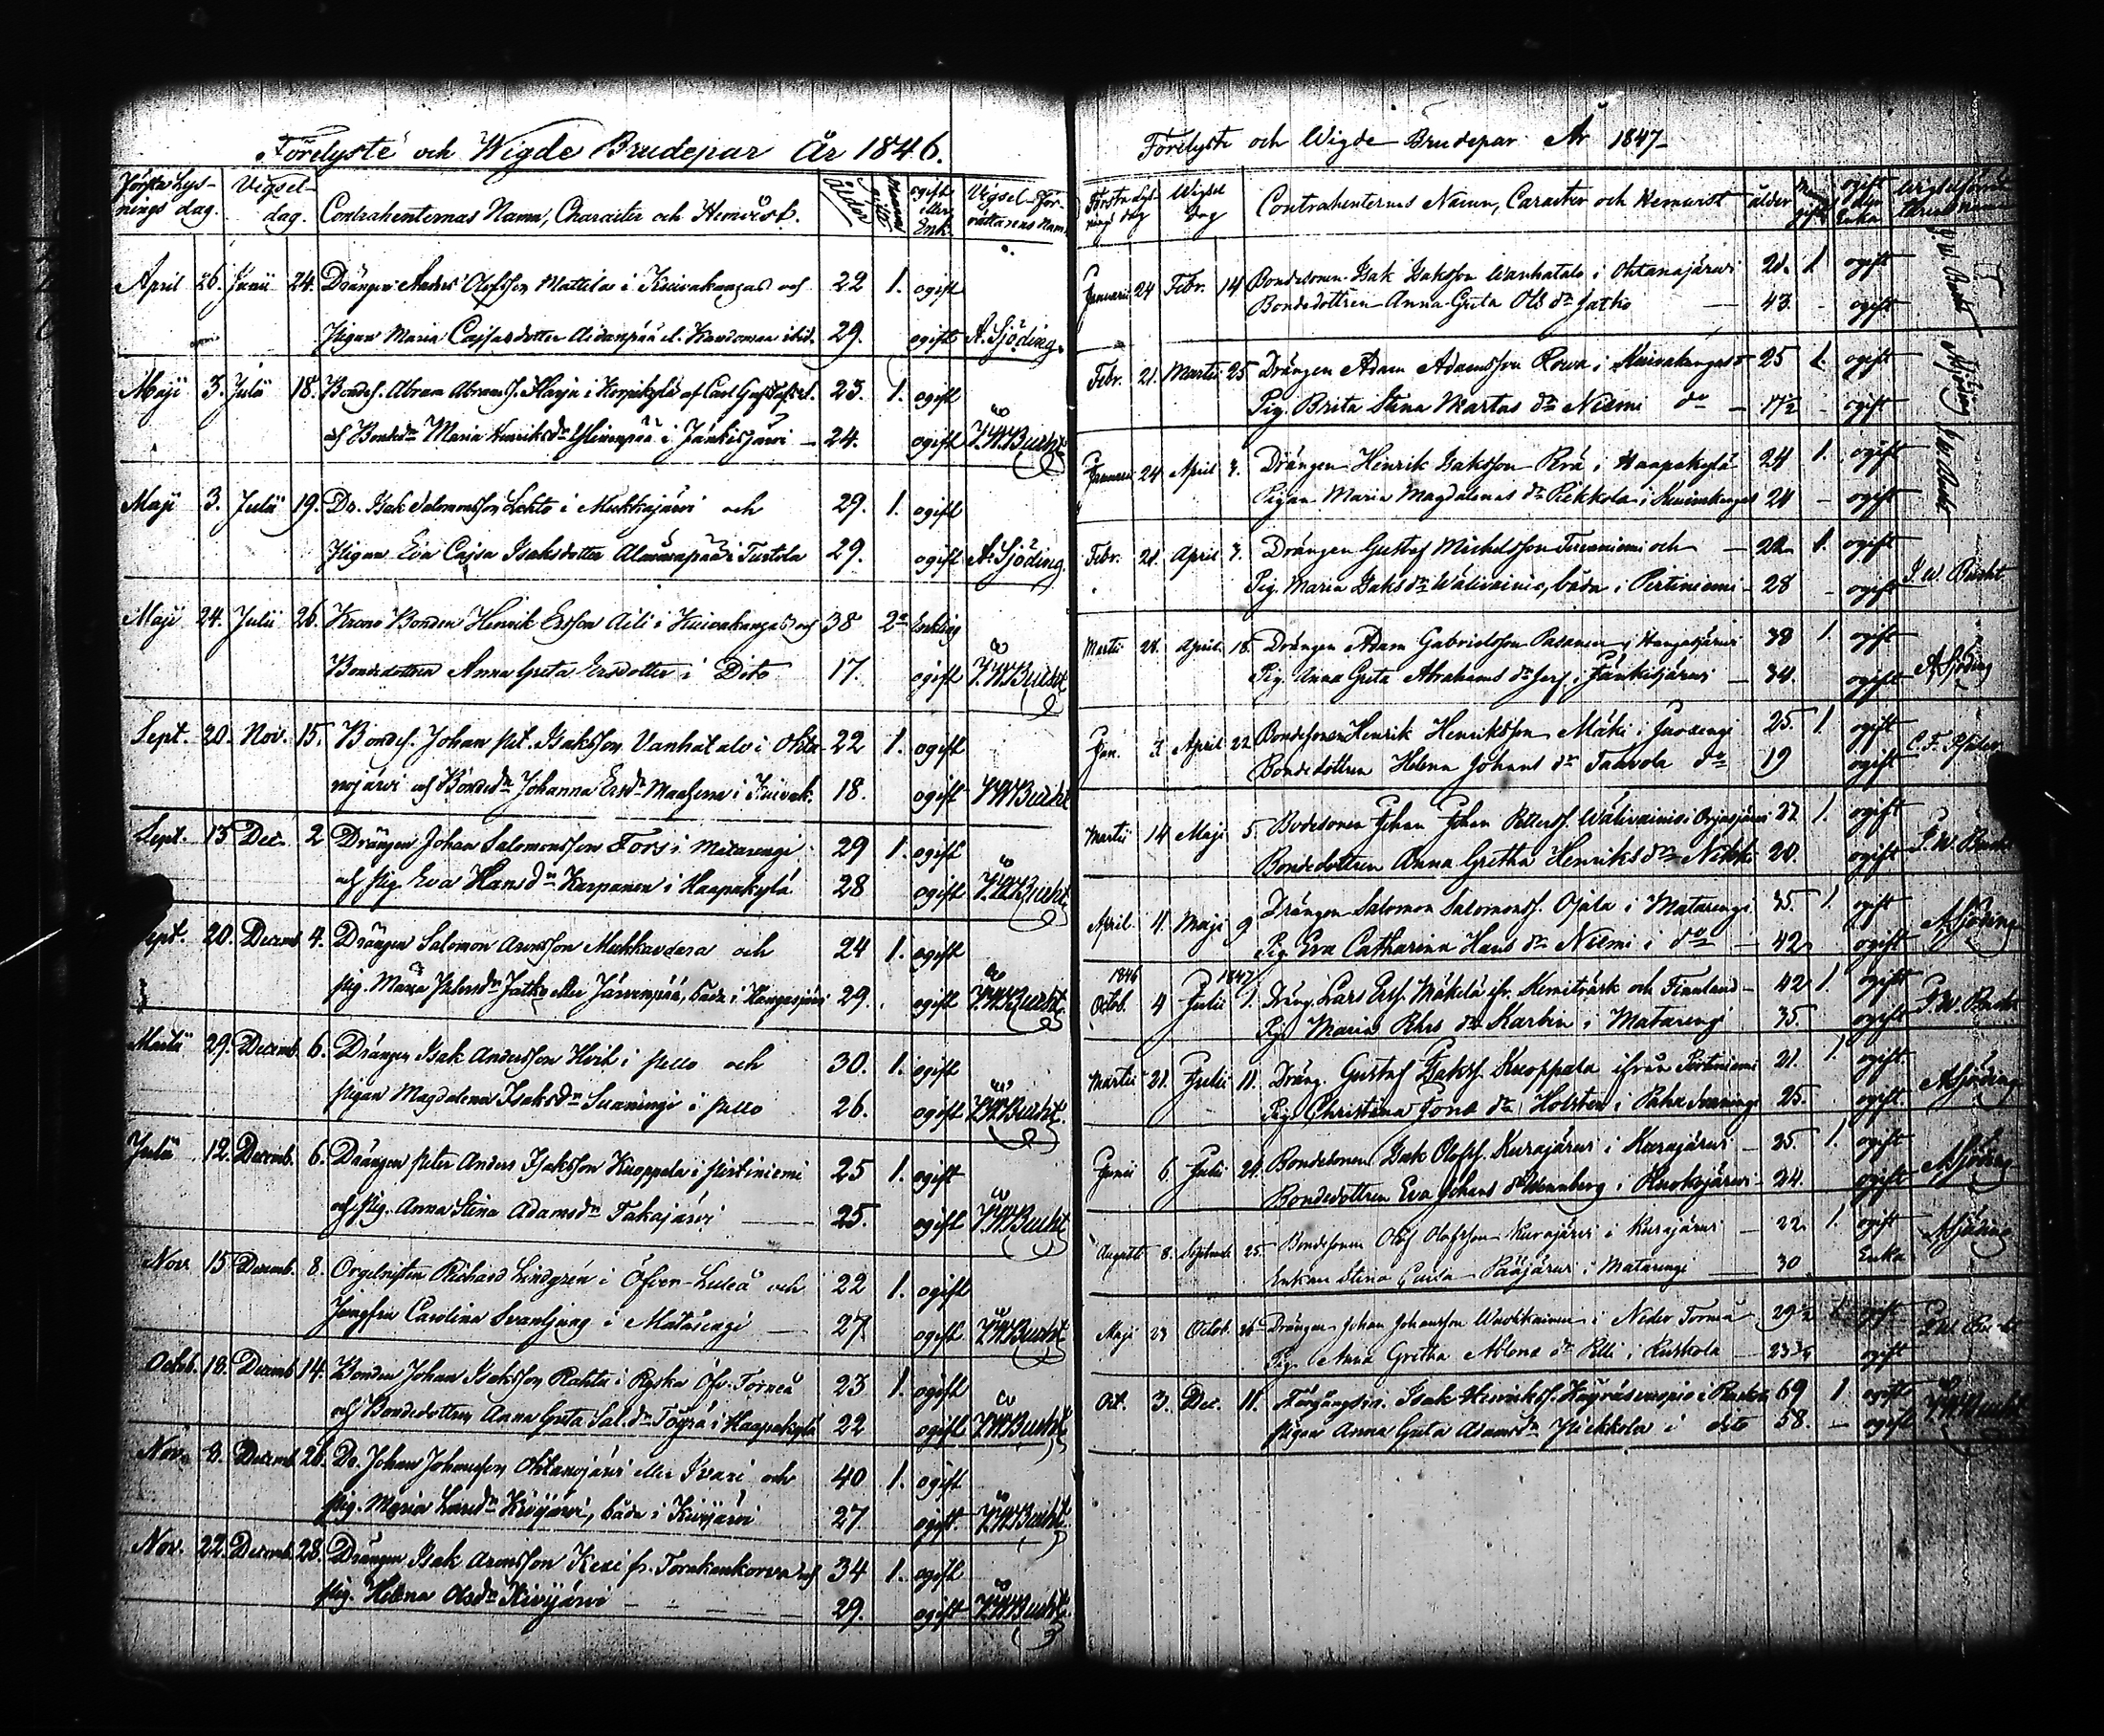 Förelyste och Wigde Brudepar År 1846.
Första Lys- Vigsel- Ålder ogift Vigsel-för-
nings dag. dag. Contrahenternas Namn, Character och Hemvist. eller Enk. rättarens Namn
April 26. Junii 24. Drängen Anders Olofsson Mattila i Kuivakangas och 22 1. ogift
Pigan Maria Cajsadotter ibid. 29. ogift A. Sjöding.
Maji 3. Julii 18. Bondes. Abram Abrams. Harju i 23. 1. ogift
och Bondedr Maria Henriksdr i Jänkisjärvi 24. ogift J.W. Bucht
Maji 3. Julii 19. Dr. Isak Salomonsson Lehto i Mukkajärvi och 29. 1. ogift
Pigan Eva Cajsa Isaksdotter i Turtola 29. ogift A. Sjöding.
Maji 24. Julii 26. Krono Bonden Henrik Ersson Aili i Kuivakangas och 38 2a Enkling
Bondedottren Anna Greta Ersdotter i Dito 17. ogift J.W. Bucht
Sept. 20. Nov. 15. Bondes. Johan Pet. Isaksson Vanhatalo i Okta- 22 1. ogift
nojärvi och Bondedn Johanna Ersdn i Kuivak. 18. ogift J.W. Bucht
Sept. 13 Dec. 2 Drängen Johan Salomonsson Fors i Matarengi 29 1. ogift
och Pig. Eva Hansdn Karpanen i Haapakylä 28 ogift J.W. Bucht
Sept. 20. Decemb. 4. Drängen Salomon Aronsson Mukkavaara och 24 1. ogift
Pig. Maria Petersdn Jatko eller Järvenpää, båda i 29. ogift J.W. Bucht
Martii 29. Decemb. 6. Drängen Isak Andersson Kvit i Pello och 30. 1. ogift
Pigan Magdalena Isaksdn Suaningi i Pello 26. ogift J.W. Bucht
Julii 12. Decemb. 6. Drängen Peter Anders Isaksson Kuoppala i Pirtiniemi 25 1. ogift
och Pig. Anna Stina Adamsdn Takajärvi 25. ogift J.W. Bucht
Nov. 15 Decemb. 8. Orgelnisten Richard Lindgrén i Öfver-Luleå och 22 1. ogift
Jungfru Carolina Svanljung i Matarengi 27 ogift J.W. Bucht
Octob. 18. Decemb. 14. Bonden Johan Isaksson Rahtu i Ryska Öfv. Torneå 23 1. ogift
och Bondedottren Anna Greta Sal.dn Töyrä i Haapakylä 22 ogift J.W. Bucht
Nov. 8. Decemb. 26. Dr. Johan Johansson Oktanojärvi eller Ivari och 40 1. ogift
Pig. Maria Larsdn Kivijärvi, båda i Kivijärvi 27 ogift J.W. Bucht
Nov. 22. Decemb. 28. Drängen Isak Aronsson Kexi fr. Torakankorva och 34 1. ogift
Pig. Helena Olsdn Kivijärvi 29. ogift J.W. Bucht
Förelyste och Wigde Brudepar År 1847
Första Lys- Wigsel
nings dag dag Contrahenternas Namn, Caracter och Hemvist ålder ogift eller Enka
Januarii 24 Febr. 14 Bondesonen Isak Isaksson Wanhatalo i Oktanajärwi 21. 1. ogift
Bondedottren Anna Greta Ols dr Jatko 43. - ogift
Febr. 21. Martii 25 Drängen Adam Adamsson Rowa i Kuivakangas 25 1. ogift
Pig. Brita Stina Martas dr Niemi do 17½ - ogift
Januarii 24 April 3. Drängen Henrik Isaksson Perä i Haapakylä 24 1. ogift
Pigan Maria Magdalenas dr Pikkola i Kuivakangas 24 - ogift
Febr. 21. April 3. Drängen Gustaf Michelsson och 22 1. ogift
Pig. Maria Isaks dr Wälivainio, båda i Pirtiniemi 28 - ogift J.W. Bucht
Martii 28. April 18. Drängen Adam Gabrielsson Pasanen 38 1. ogift
Pig. Anna Greta Abrahams dr i Jänkisjärvi 34. ogift A. Sjöding
Jan. 3. April 22 Bondesonen Henrik Henriksson Mäki i Juoxengi 25. 1. ogift
Bondedottren Helena Johans dr do 19 ogift
Martii 14 Maji 5. Bodesonen Johan Johan Petterss. Wälivainio 27 1. ogift
Bondedottren Anna Gretha Henriksdr 20. ogift J.W. Bucht
April 11. Maji 9 Drängen Salomon Salomonss. Ojala i Matarengi 35. 1. ogift
Pig Eva Catharina Hans dr Niemi i do 42 ogift A. Sjöding
1846 1847
Octob. 4 Julii 1. Dräng. Lars Ers. Mäkelä ifr. Kemiträsk och Finnland 42 1. ogift
Pig. Maria Pehrs dr Karbin i Matarengi 35. ogift J.W. Bucht
Martii 21. Julii 11. Dräng. Gustaf Isakss. Kuoppala ifrån Pirtiniemi 21. 1. ogift.
Pig. Christina Jons dr Holsten i 25. ogift A. Sjöding
Junii 6. Julii 20. Bondesonen Isak Olofss. Kurajärvi i Kurajärvi 35. 1. ogift
Bondedottren Eva Johans dr Wennberg i 24. ogift A. Sjöding
Augusti 8. Septemb. 25. Bondesonen Olof Olofsson Kurajärvi i Kurajärvi 22. 1. ogift
Enkan Stina Caisa Pääjärvi i Matarengi 30 Enka A. Sjöding
Maji 23 Octob. 26 Drängen Johan Johansson i Neder Torneå 29½ 1. ogift
Pig. Anna Gretha dr i Ruskola 23¾ ogift J.W. Bucht
Oct. 3. Dec. 11. Isak Henrikss. i 69 1. ogift
Pigan Anna Greta Adamsdn Pickkola i dito 58. - ogift J.W. Bucht